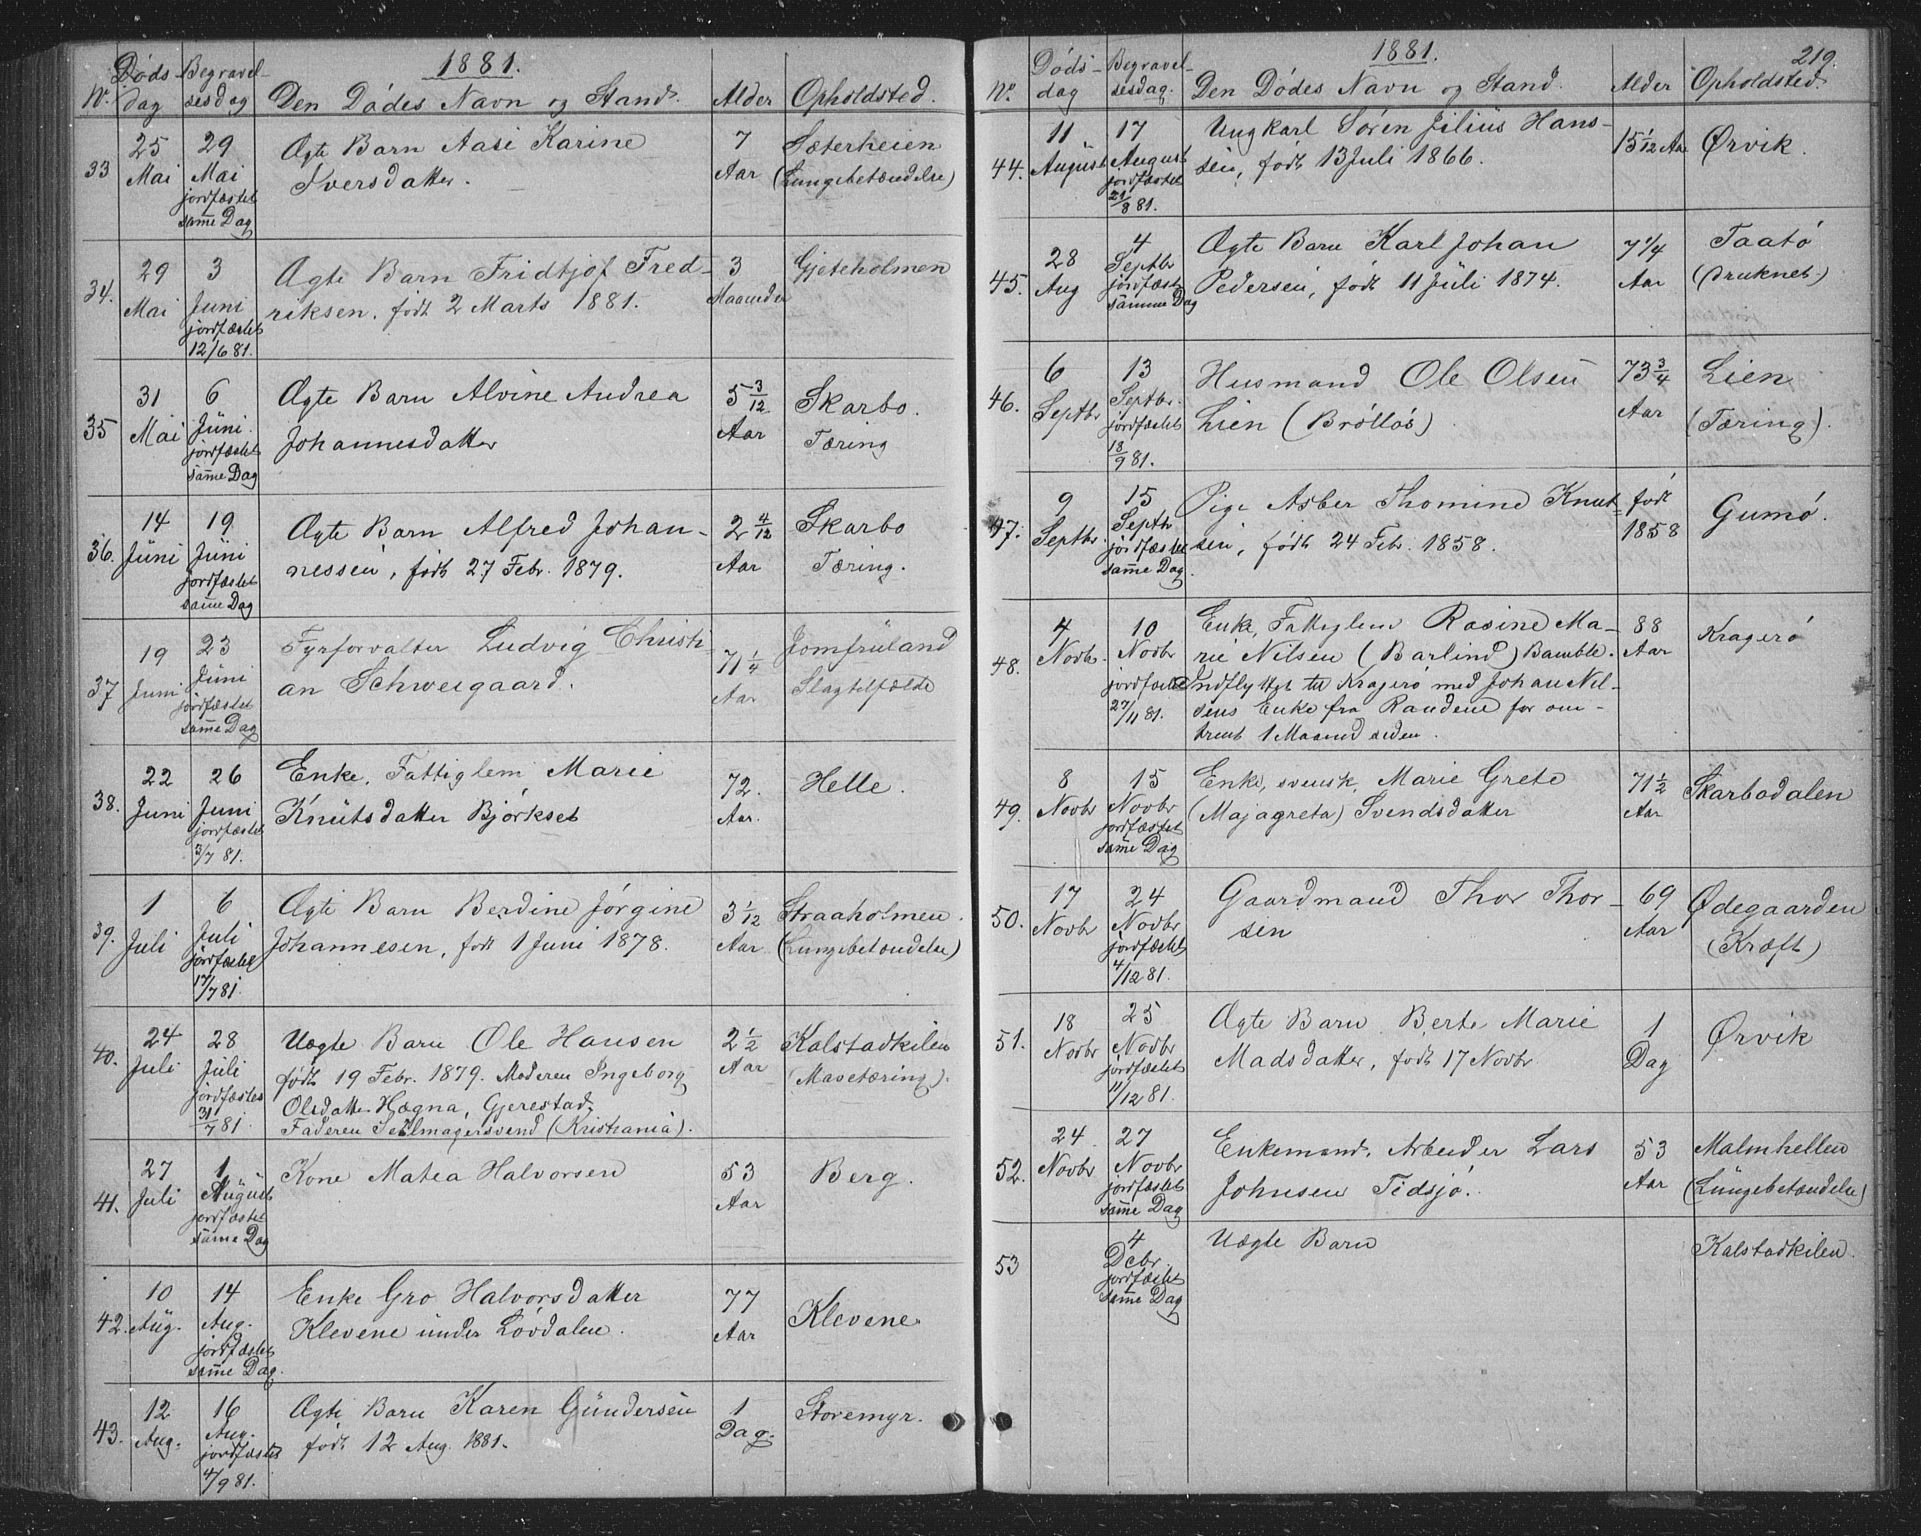 1881.
Døds-
dag
Begravel-
sesdag
No.
Den Dødes Navn og Stand.
Alder
Opholdsted.
33
25
Mai
29
Mai
jordfæstet
samme Dag
Ægte Barn Aasi Karine
Iversdatter.
7
Aar
Sæterheien
(Lungebetændelse)
34.
29
Mai
3
Juni
jordfæstet
12/6 81.
Ægte Barn Fridtjof Fred-
riksen, født 2 Marts 1881.
3
Maaneder
Gjeteholmen
35
31
Mai
6
Juni.
jordfæstet
samme Dag
Ægte Barn Alvine Andrea
Johannesdatter
5 3/12
Aar
Skarbo.
Tæring
36.
14
Juni
19
Juni
jordfæstet
samme Dag
Ægte Barn Alfred Johan-
nessen, født 27 Febr. 1879.
2 4/12
Aar
Skarbo
Tæring.
37
19
Juni
23
Juni
jordfæstet
samme Dag
Fyrforvalter Ludvig Christi-
an Schweigaard.
71 1/4
Aar
Jomfruland
Slagtilfælde
38.
22
Juni
26
Juni
jordfæstet
3/7 81.
Enke, Fattiglem Marie
Knutsdatter Bjørkset
72.
Aar.
Helle.
39.
1
Juli
6
Juli
jordfæstet
17/7 81.
Ægte Barn Berdine Jørgine
Johannesen, født 1 Juni 1878.
3 1/12
Aar
Straaholmen.
(Lungebetændelse)
40.
24
Juli
28
Juli
jordfæstet
31/7 81.
Uægte Barn Ole Hansen
født 19 Febr. 1879. Moderen Ingeborg
Olsdatter Hægna, Gjerestad,
Faderen Seilmagersvend (Kristiania).
2 1/2
Aar
Kalstadkilen
(Mavetæring).
41.
27
Juli
1
August
jordfæstet
samme Dag
Kone Matea Halvorsen
53
Aar
Berg.
42.
10
Aug.
14
Aug.
jordfæstet
samme Dag.
Enke Gro Halvorsdatter
Klevene under Løvdalen.
77
Aar
Klevene.
43.
12
Aug.
16
Aug.
jordfæstet
4/9 81.
Ægte Barn Karen Gundersen
født 12 Aug. 1881.
1
Dag.
Storemyr.
1881.
219.
No.
Døds-
dag
Begravel-
sesdag.
Den Dødes Navn og Stand.
Alder
Opholdsted.
44.
11
August
17
August
jordfæstet
21/8 81.
Ungkarl Søren Julius Hans-
sen, født 13 Juli 1866.
15 1/12 Aar
Ørvik.
45.
28
Aug
4
Septbr
jordfæstet
samme Dag
Ægte Barn Karl Johan
Pedersen, født 11 Juli 1874.
7 1/4
Aar
Taatø
(Druknet)
46.
6
Septbr
13
Septbr.
jordfæstet
18/9 81.
Husmand Ole Olsen
Lien (Brølløs)
73 3/4
Aar
Lien
(Tæring).
47.
9
Septbr.
15
Septbr
jordfæstet
samme Dag.
Pige Asber Thomine Knut-
sen, født 24 Febr. 1858.
født
1858
Gumø.
48.
4
Novbr.
10
Novbr
jordfæstet
27/11 81.
Enke, Fattiglem Rasine Ma-
rie Nilsen (Barlind) Bamble.
Indflyttet til Kragerø med Johan Nil-
sens Enke fra Randene for om-
trent 1 Maaned siden.
88
Aar
Kragerø
49.
8
Novbr
15
Novbr
jordfæstet
samme Dag
Enke, svensk, Marie Grete
(Majagreta) Svendsdatter
71 1/2
Aar
Skarbodalen
50.
17
Novbr
24
Novbr
jordfæstet
4/12 81.
Gaardmand Thor Thor-
sen
69
Aar
Ødegaarden
(Kræft)
51.
18
Novbr
25
Novbr
jordfæstet
11/12 81.
Ægte Barn Berte Marie
Madsdatter, født 17 Novbr
1
Dag
Ørvik
52.
24
Novbr
27
Novbr
jordfæstet
samme Dag
Enkemand, Arbeider Lars
Johnsen Tidsjø.
53
Aar
Malmhellen
(Lungebetændelse)
53
4
Dcbr.
jordfæstet
samme Dag
Uægte Barn
Kalstadkilen.